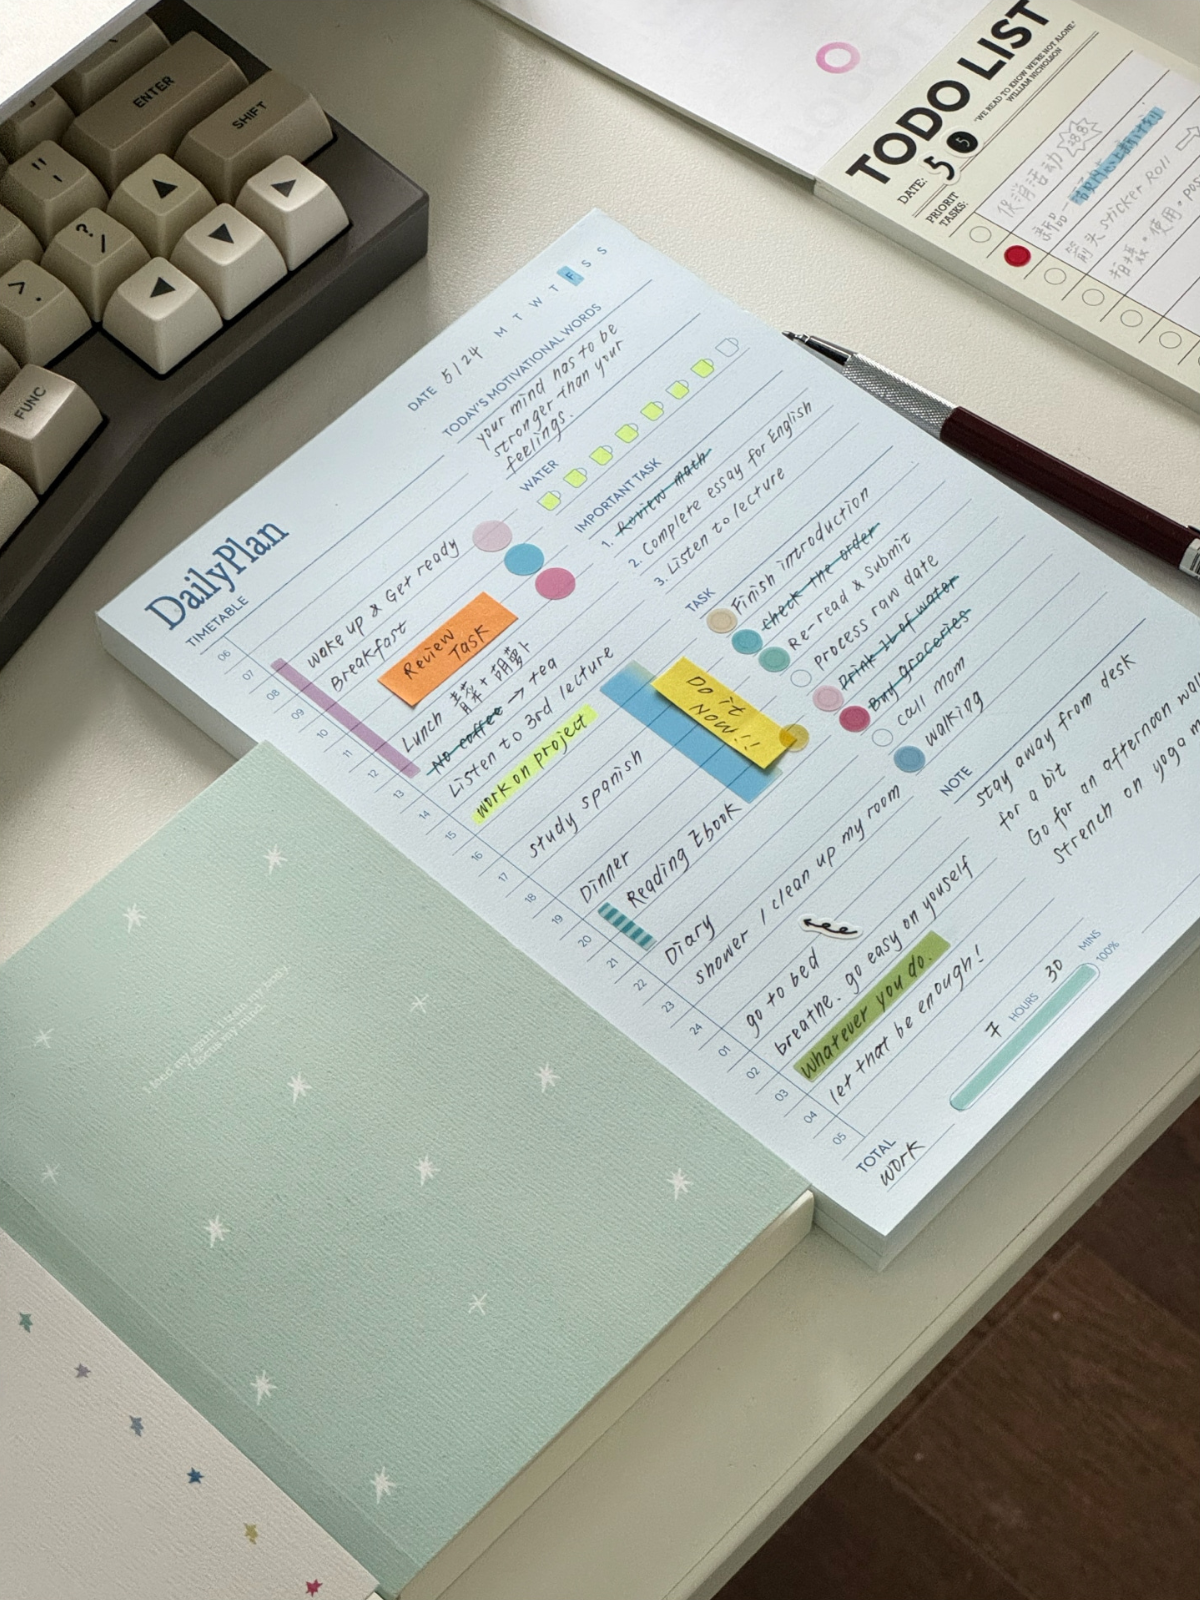 ENTER
SHIFT
"
'
?
/
>
.
FUNC
TODO LIST
"WE READ TO KNOW WE'RE NOT ALONE."
WILLIAM NICHOLSON
DATE: 5 5
PRIORIT
TASKS:
sticker Roll
DailyPlan
DATE 5/24 M T W T F S S
TODAY'S MOTIVATIONAL WORDS
your mind has to be
stronger than your
feelings.
WATER
IMPORTANT TASK
1. Review math
2. Complete essay for English
3. Listen to lecture
TASK
Finish introduction
check the order
Re-read & Submit
process raw date
Drink 1L of water
Buy groceries
call mom
walking
NOTE
stay away from desk
for a bit
Go for an afternoon wal
strench on yoga m
TIMETABLE
06
07 wake up & Get ready
08 Breakfast
09 Review
Task
10
11
12 Lunch
13 No coffee → tea
14 Listen to 3rd lecture
15 work on project
16
17 study spanish
18
19 Dinner
20 Reading Ebook
21
22 Diary
23 shower / clean up my room
24
01 go to bed
02 breathe. go easy on youself
03 whatever you do.
04 let that be enough!
05
Do it
Now!!
TOTAL
work
7 HOURS 30 MINS
100%